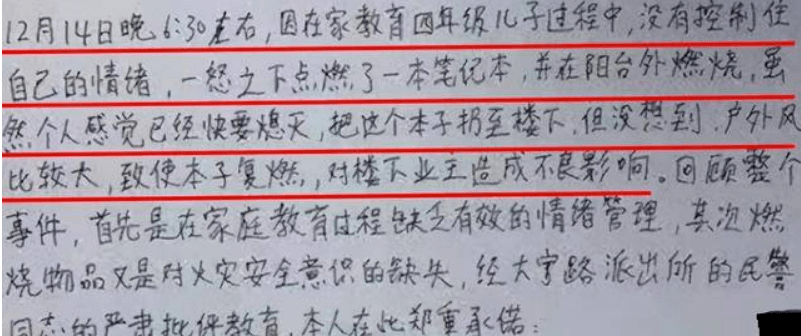 12月14日晚6:30左右,因在家教育四年级儿子过程中,没有控制住
自己的情绪,一怒之下点燃了一本笔记本,并在阳台外燃烧,虽
然个人感觉已经快要熄灭,把这个本子扔至楼下,但没想到,户外风
比较大,致使本子复燃,对楼下业主造成不良影响。回顾整个
事件,首先是在家庭教育过程缺乏有效的情绪管理,其次燃
烧物品又是对火灾安全意识的缺失,经大宁路派出所的民警
同志的严肃批评教育,本人在此郑重承诺: